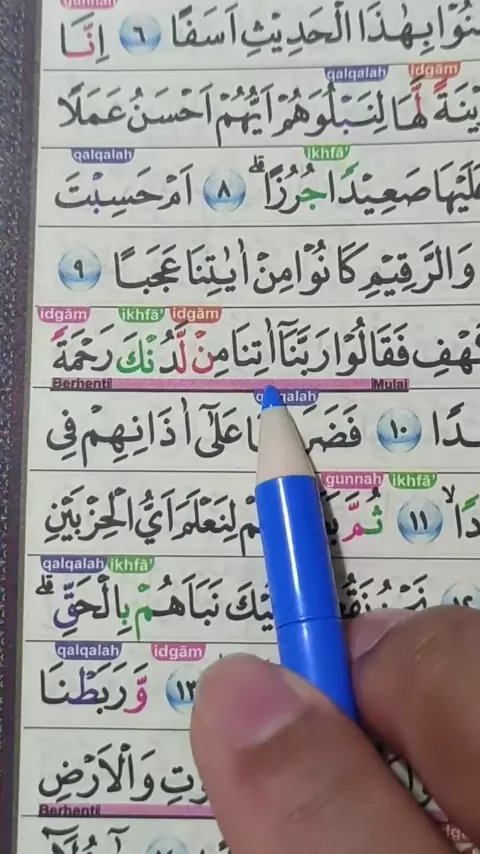 gunnah
بِهٰذَا الْحَدِيْثِ اَسَفًا ٦ اِنَّا
qalqalah idgām
لَّهَا لِنَبْلُوَهُمْ اَيُّهُمْ اَحْسَنُ عَمَلًا
qalqalah ikhfā'
صَعِيْدًا جُرُزًاۗ ٨ اَمْ حَسِبْتَ
وَالرَّقِيْمِ كَانُوْا مِنْ اٰيٰتِنَا عَجَبًا ٩
idgām ikhfā' idgām
فَقَالُوْا رَبَّنَآ اٰتِنَا مِنْ لَّدُنْكَ رَحْمَةً
Berhenti Mulai
١٠ عَلٰٓى اٰذَانِهِمْ فِى
gunnah ikhfā'
١١ ثُمَّ لِنَعْلَمَ اَيُّ الْحِزْبَيْنِ
qalqalah ikhfā'
نَبَاَهُمْ بِالْحَقِّۗ
qalqalah idgām
١٣ وَّرَبَطْنَا
وَالْاَرْضِ
Berhenti